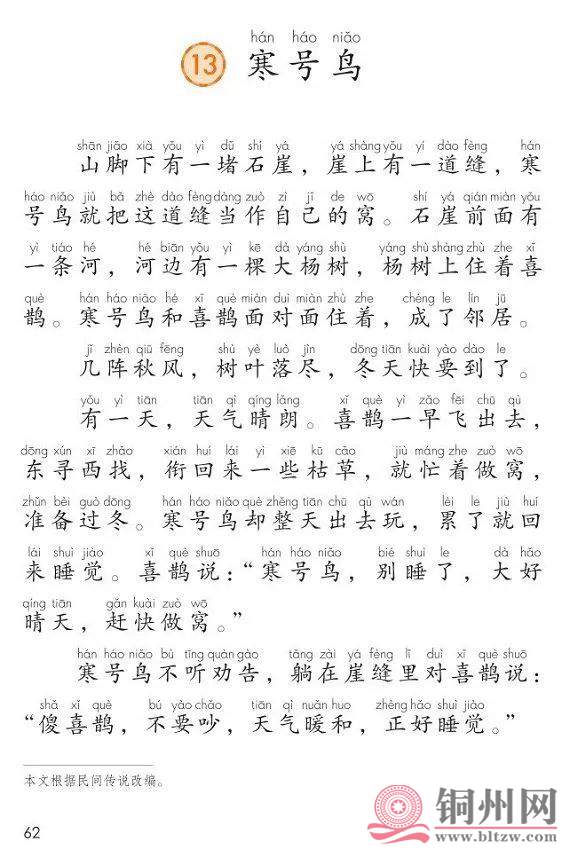 hán háo niǎo
13 寒号鸟
shān jiǎo xià yǒu yì dǔ shí yá yá shàng yǒu yí dào fèng hán
山脚下有一堵石崖，崖上有一道缝，寒
háo niǎo jiù bǎ zhè dào fèng dàng zuò zì jǐ de wō shí yá qián miàn yǒu
号鸟就把这道缝当作自己的窝。石崖前面有
yì tiáo hé hé biān yǒu yì kē dà yáng shù yáng shù shàng zhù zhe xǐ
一条河，河边有一棵大杨树，杨树上住着喜
què hán háo niǎo hé xǐ què miàn duì miàn zhù zhe chéng le lín jū
鹊。寒号鸟和喜鹊面对面住着，成了邻居。
jǐ zhèn qiū fēng shù yè luò jìn dōng tiān kuài yào dào le
几阵秋风，树叶落尽，冬天快要到了。
yǒu yì tiān tiān qì qíng lǎng xǐ què yì zǎo fēi chū qù
有一天，天气晴朗。喜鹊一早飞出去，
dōng xún xī zhǎo xián huí lái yì xiē kū cǎo jiù máng zhe zuò wō
东寻西找，衔回来一些枯草，就忙着做窝，
zhǔn bèi guò dōng hán háo niǎo què zhěng tiān chū qù wán lèi le jiù huí
准备过冬。寒号鸟却整天出去玩，累了就回
lái shuì jiào xǐ què shuō hán háo niǎo bié shuì le dà hǎo
来睡觉。喜鹊说：“寒号鸟，别睡了，大好
qíng tiān gǎn kuài zuò wō
晴天，赶快做窝。”
hán háo niǎo bù tīng quàn gào tǎng zài yá fèng lǐ duì xǐ què shuō
寒号鸟不听劝告，躺在崖缝里对喜鹊说：
shǎ xǐ què bú yào chǎo tiān qì nuǎn huo zhèng hǎo shuì jiào
“傻喜鹊，不要吵，天气暖和，正好睡觉。”
本文根据民间传说改编。
62
铜州网
www.bltzw.com